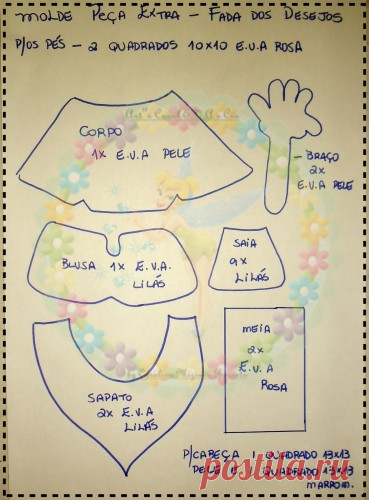 MOLDE PEÇA EXTRA - FADA DOS DESEJOS
P/OS PÉS - 2 QUADRADOS 10x10 E.V.A ROSA
CORPO
1x E.V.A PELE
- BRAÇO
2x
E.V.A PELE
BLUSA 1x E.V.A.
LILÁS
SAIA
9x
LILÁS
MEIA
2x
E.V.A
ROSA
SAPATO
2x E.V.A
LILÁS
P/CABEÇA 1 QUADRADO 13x13
PELE QUADRADO 13x13
MARROM.
postila.ru